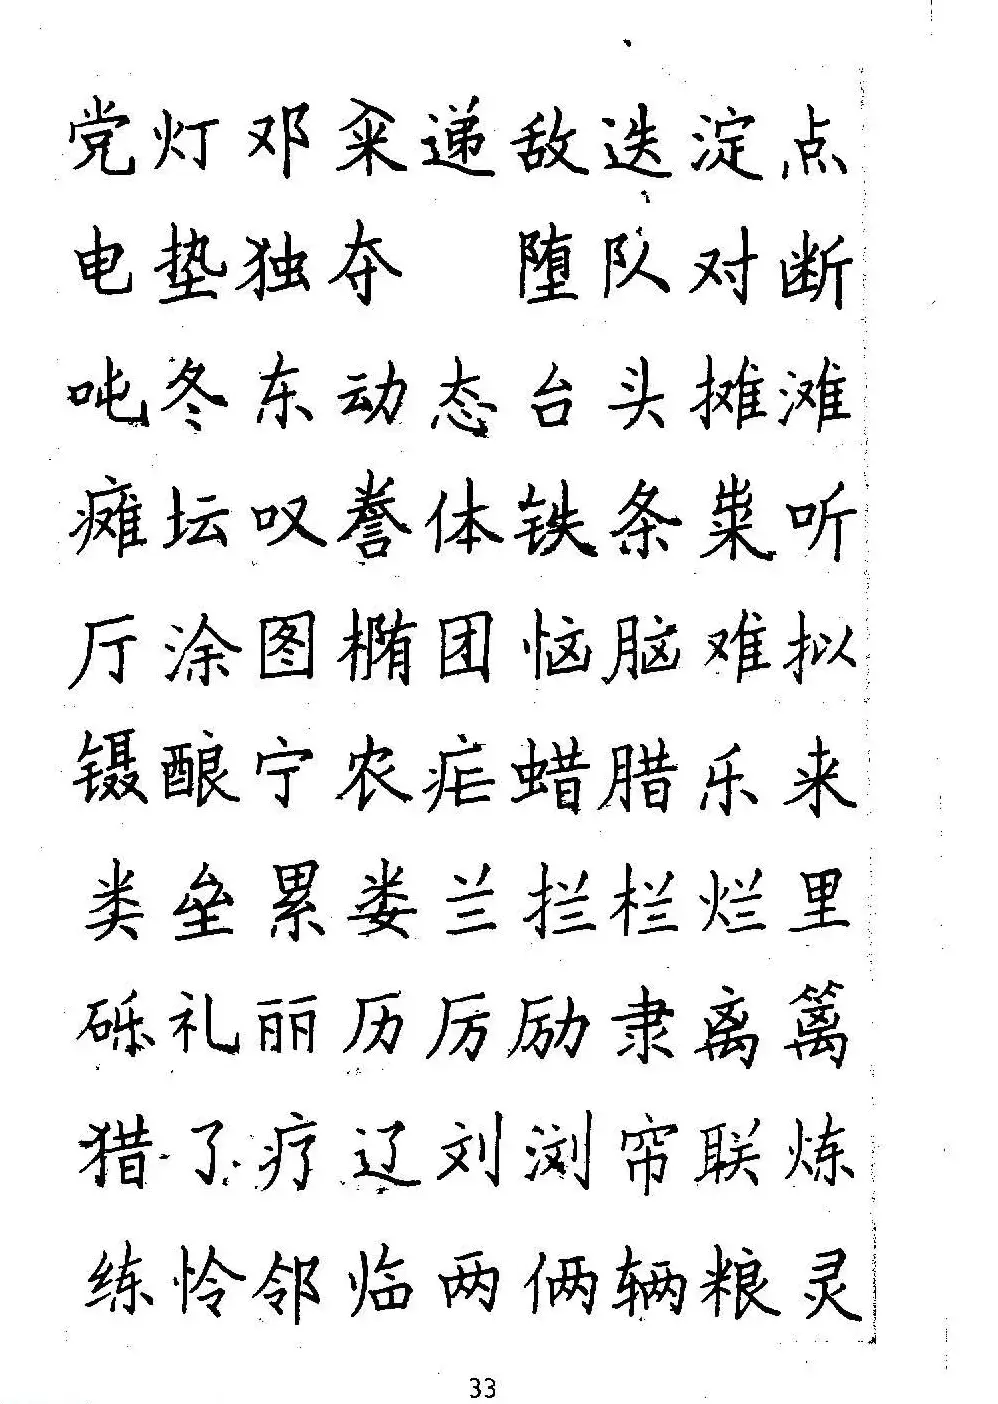 党灯邓籴递敌迭淀点
电垫独夺 堕队对断
吨冬东动态台头摊滩
瘫坛叹誊体铁条粜听
厅涂图椭团恼脑难拟
镊酿宁农疟蜡腊乐来
类垒累娄兰拦栏烂里
砾礼丽历厉励隶离篱
猎了疗辽刘浏帘联炼
练怜邻临两俩辆粮灵
33